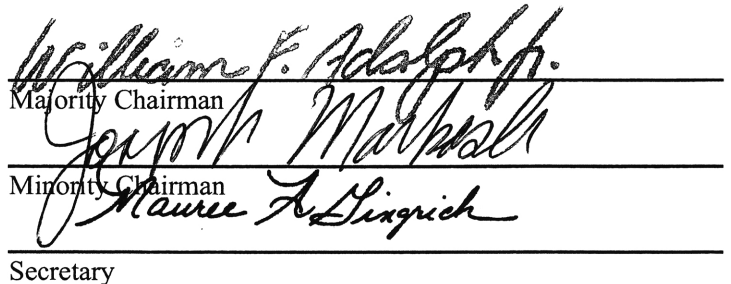 William F. Adolph Jr.
Majority Chairman
Joseph Markosek
Minority Chairman
Mauree A Gingrich
Secretary